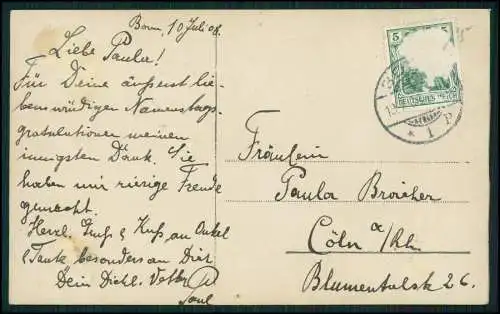 Bonn, 10 Juli 08.
Liebe Paula!
Für Deine äusserst lie-
benswürdigen Namenstags-
gratulationen meinen
innigsten Dank. Sie
haben mir riesige Freude
gemacht.
Herzl. Gruß & Kuß an Onkel
& Tante besonders an Dich
Dein Dichl. Vetter
Paul
5
DEUTSCHES REICH
* 1 P
Fräulein
Paula Broicher
Cöln a/Rh
Blumentalstr 26.